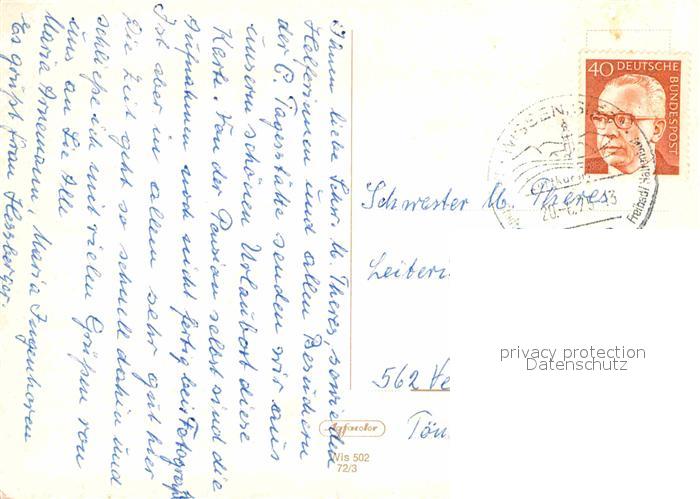 Ihnen liebe Schw. M. Theres, sowie den
Helferinnen und allen Besuchern
der C. Tagesstätte senden wir aus
unserm schönen Urlaubort diese
Karte. Von der Pension selbst sind die
Aufnahmen noch nicht fertig beim Fotograf
Ist aber in allem sehr gut hier
Die Zeit geht so schnell dahin und
schließe ich mit vielen Grüßen von
uns an Sie Alle
Maria Maria Ingenhoven
Es grüßt Frau
40 DEUTSCHE
BUNDESPOST
WISSEN, SIEG
Luftkurort
Freibad
Schwester M. Theres
Leiteri
562 Ve
Tön
privacy protection
Datenschutz
Agfacolor
Wis 502
72/3